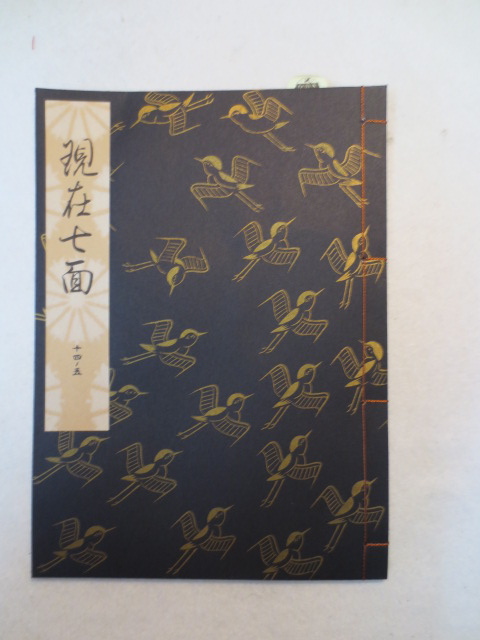 現在七面
十四ノ五